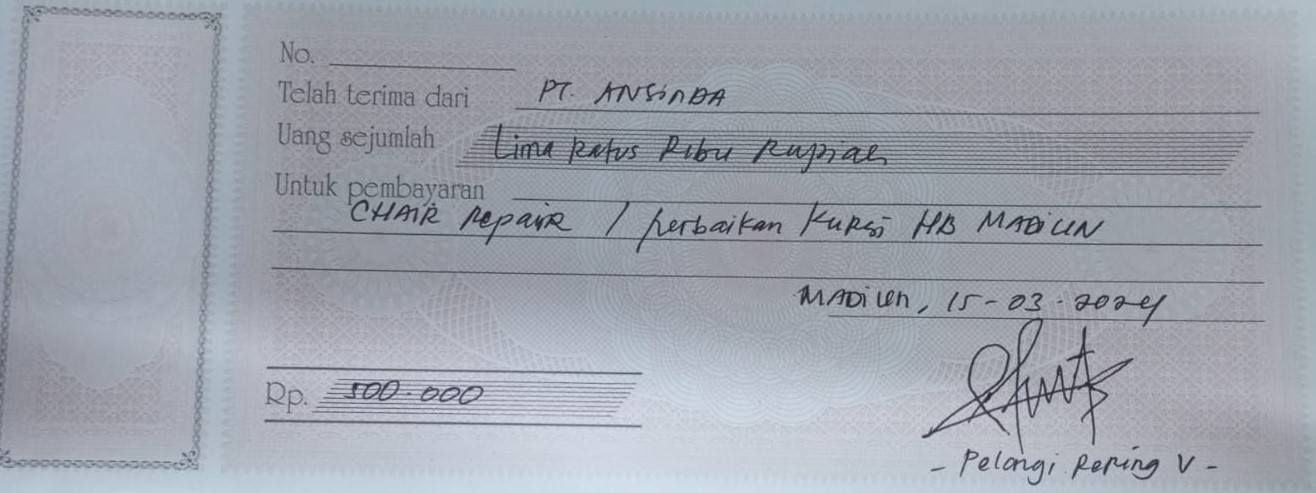 No.
Telah terima dari PT. ANSINDA
Uang sejumlah Lima Ratus Ribu Rupiah
Untuk pembayaran
CHAIR Repair / perbaikan Kursi HB MADIUN
MADIUN, 15-03-2024
Rp. 500.000
- Pelangi Rering V -